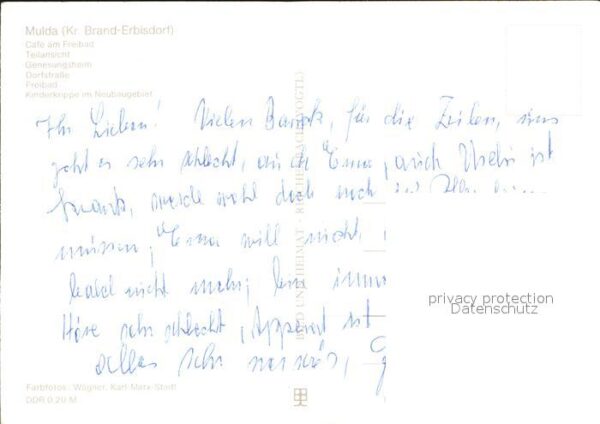 Mulda (Kr. Brand-Erbisdorf)
Cafe am Freibad
Teilansicht
Genesungsheim
Dorfstraße
Freibad
Kinderkrippe im Neubaugebiet
Ihr Lieben! Vielen Dank, für die Zeilen, uns
geht es sehr schlecht, auch Erna, auch Uschi ist
krank, werde wohl doch noch
müssen, Erna will nicht,
bald nicht mehr, bin
Höre sehr schlecht, Apperat ist
alles sehr
BILD UND HEIMAT · REICHENBACH (VOGTL)
privacy protection
Datenschutz
Farbfotos: Wagner, Karl-Marx-Stadt
DDR 0.20 M